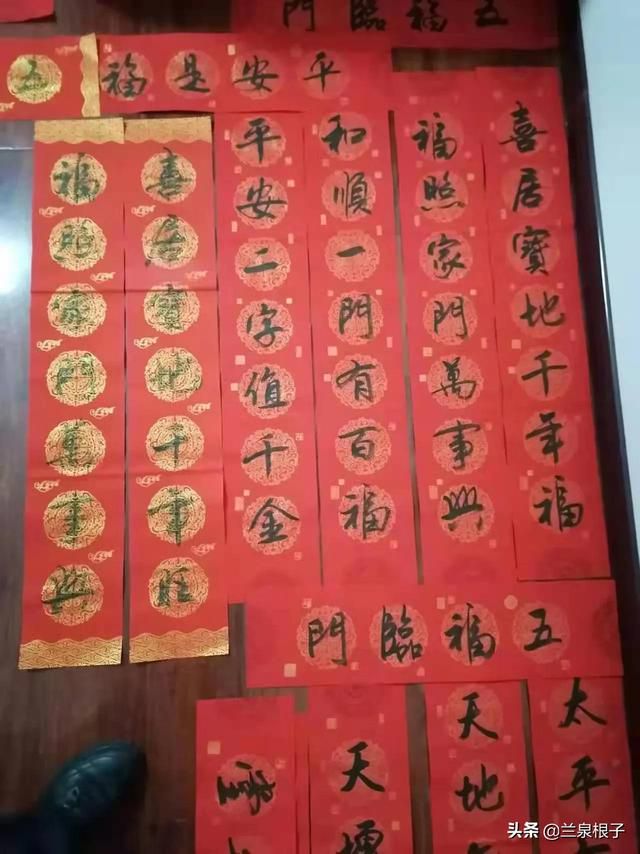 五福臨門
平安是福
五
喜居寶地千年福
福照家門萬事興
和順一門有百福
平安二字值千金
喜居寶地千年旺
福照家門萬事興
五福臨門
太平
天地
天
头条 @兰泉根子